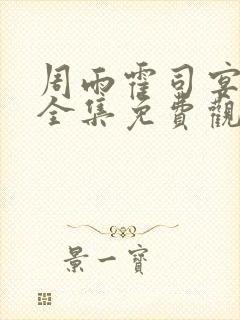 周雨霍司宴
全集免費觀
景一寶